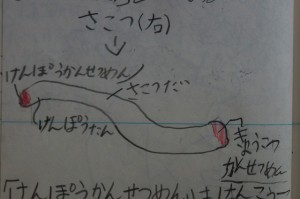 さこつ(右)
けんぽうかんせつめん
さこつたい
けんぽうたん
きょうこつ
かんせつめん
「けんぽうかんせつめん」は けんこう